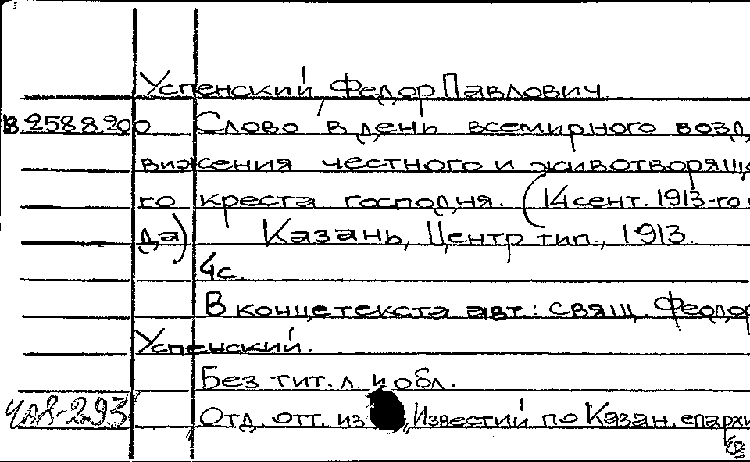 Успенский, Федор Павлович
В 2588200 Слово в день всемирного возд
вижения честного и животворяще
го креста господня. (14 сент. 1913-го го
да) Казань, Центр тип., 1913.
4с.
В конце текста авт: свящ. Феодор
Успенский.
Без тит. л и обл.
Отд. отт. из „Известий по Казан. епархи